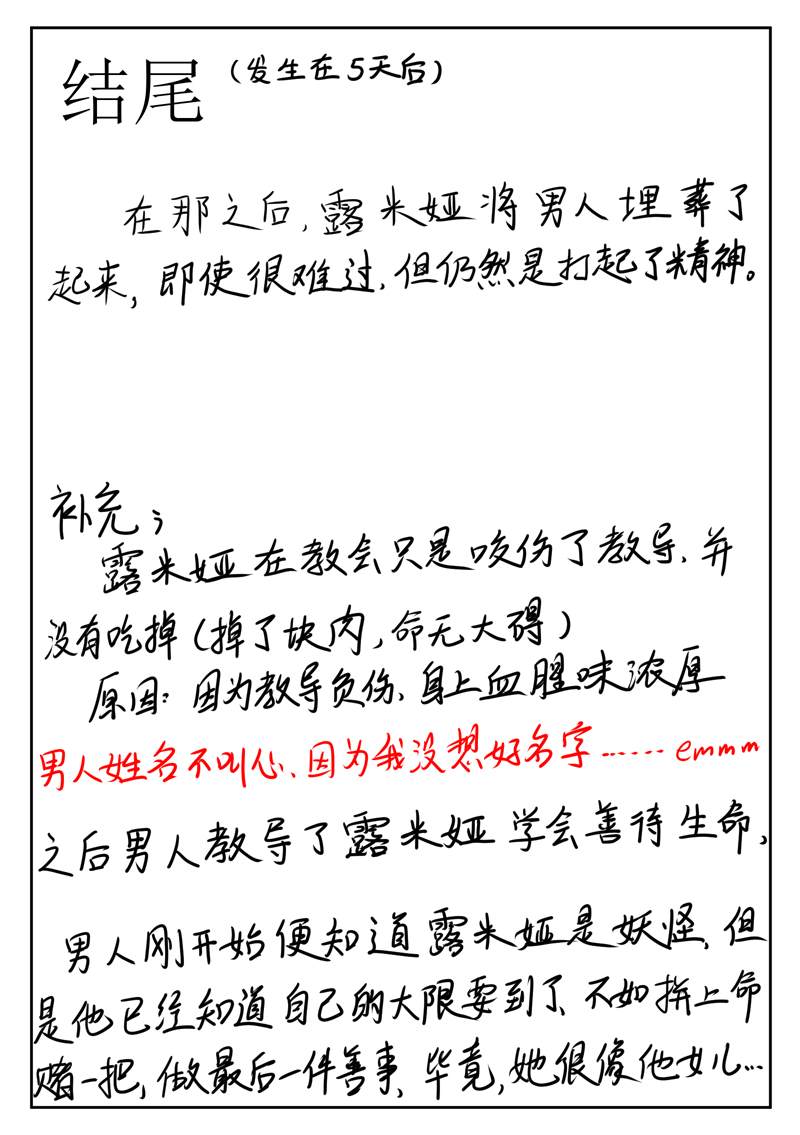 结尾（发生在5天后）
在那之后,露米娅将男人埋葬了
起来,即使很难过,但仍然是打起了精神。
补充;
露米娅在教会只是咬伤了教导、并
没有吃掉（掉了块肉,命无大碍）
原因:因为教导负伤、身上血腥味浓厚
男人姓名不叫心、因为我没想好名字……emmm
之后男人教导了露米娅学会善待生命,
男人刚开始便知道露米娅是妖怪、但
是他已经知道自己的大限要到了、不如拼上命
赌一把,做最后一件善事、毕竟,她很像他女儿…